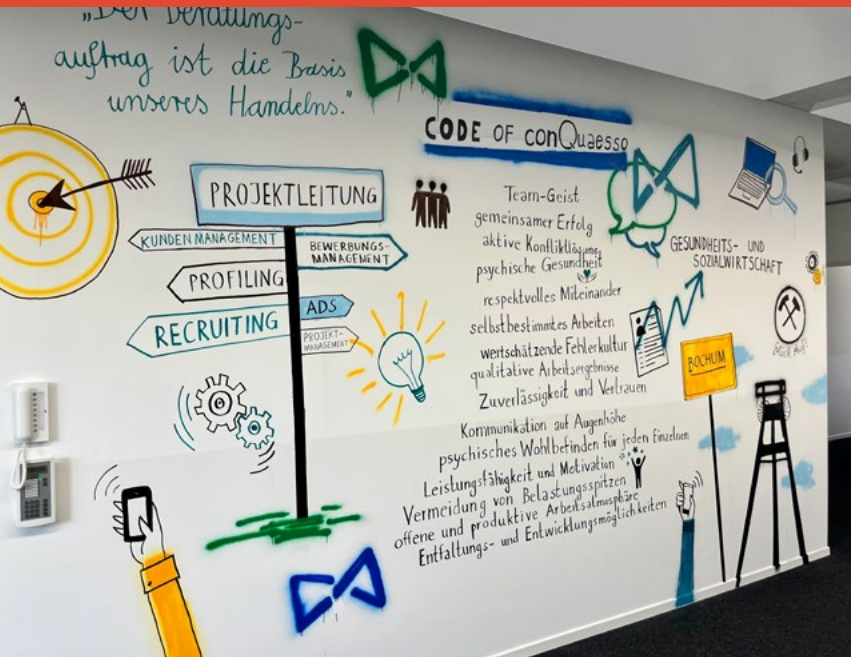 „Der Beratungs-
auftrag ist die Basis
unseres Handelns."
CODE OF conQuaesso
PROJEKTLEITUNG
KUNDENMANAGEMENT
BEWERBUNGS-
MANAGEMENT
PROFILING
ADS
RECRUITING
PROJEKT-
MANAGEMENT
Team-Geist
gemeinsamer Erfolg
aktive Konfliktlösung
psychische Gesundheit
respektvolles Miteinander
selbstbestimmtes Arbeiten
wertschätzende Fehlerkultur
qualitative Arbeitsergebnisse
Zuverlässigkeit und Vertrauen
Kommunikation auf Augenhöhe
psychisches Wohlbefinden für jeden Einzelnen
Leistungsfähigkeit und Motivation
Vermeidung von Belastungsspitzen
offene und produktive Arbeitsatmosphäre
Entfaltungs- und Entwicklungsmöglichkeiten
GESUNDHEITS- UND
SOZIALWIRTSCHAFT
Glück Auf!
BOCHUM